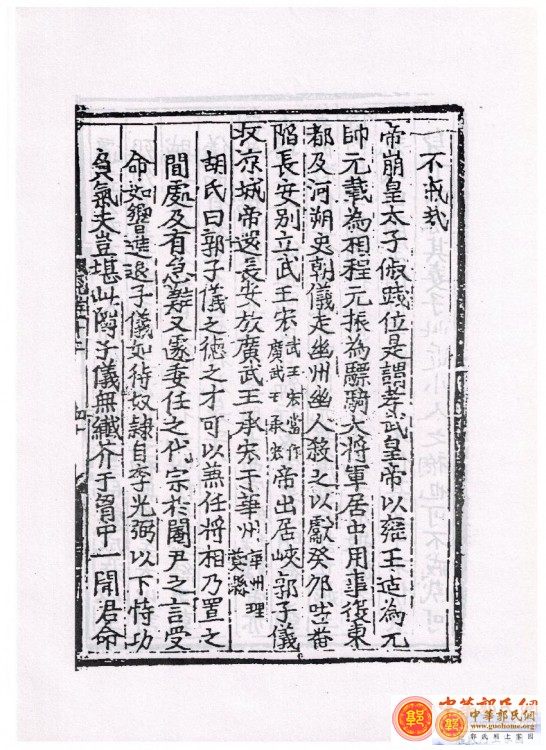 不戒哉
帝崩皇太子俶踐位是謂孝武皇帝以雍王适為元
帥元載為相程元振為驃騎大將軍居中用事復東
都及河朔史朝儀走幽州幽人殺之以獻癸卯吐蕃
陷長安別立武王宏武王宏當作廣武王承宏帝出居峽郭子儀
收京城帝還長安放廣武王承宏于華州華州理
胡氏曰郭子儀之德之才可以兼任將相乃置之
閒處及有急難又遽委任之代宗於閹尹之言受
命如響進退子儀如待奴隸自李光弼以下恃功
負氣夫豈堪此閒子儀無纖介于胷中一聞君命
中華郭氏網
www.guohome.org
郭氏網上家園